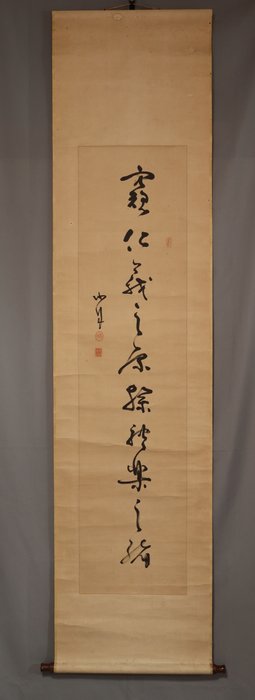 窺仁義之原探禮樂之緒